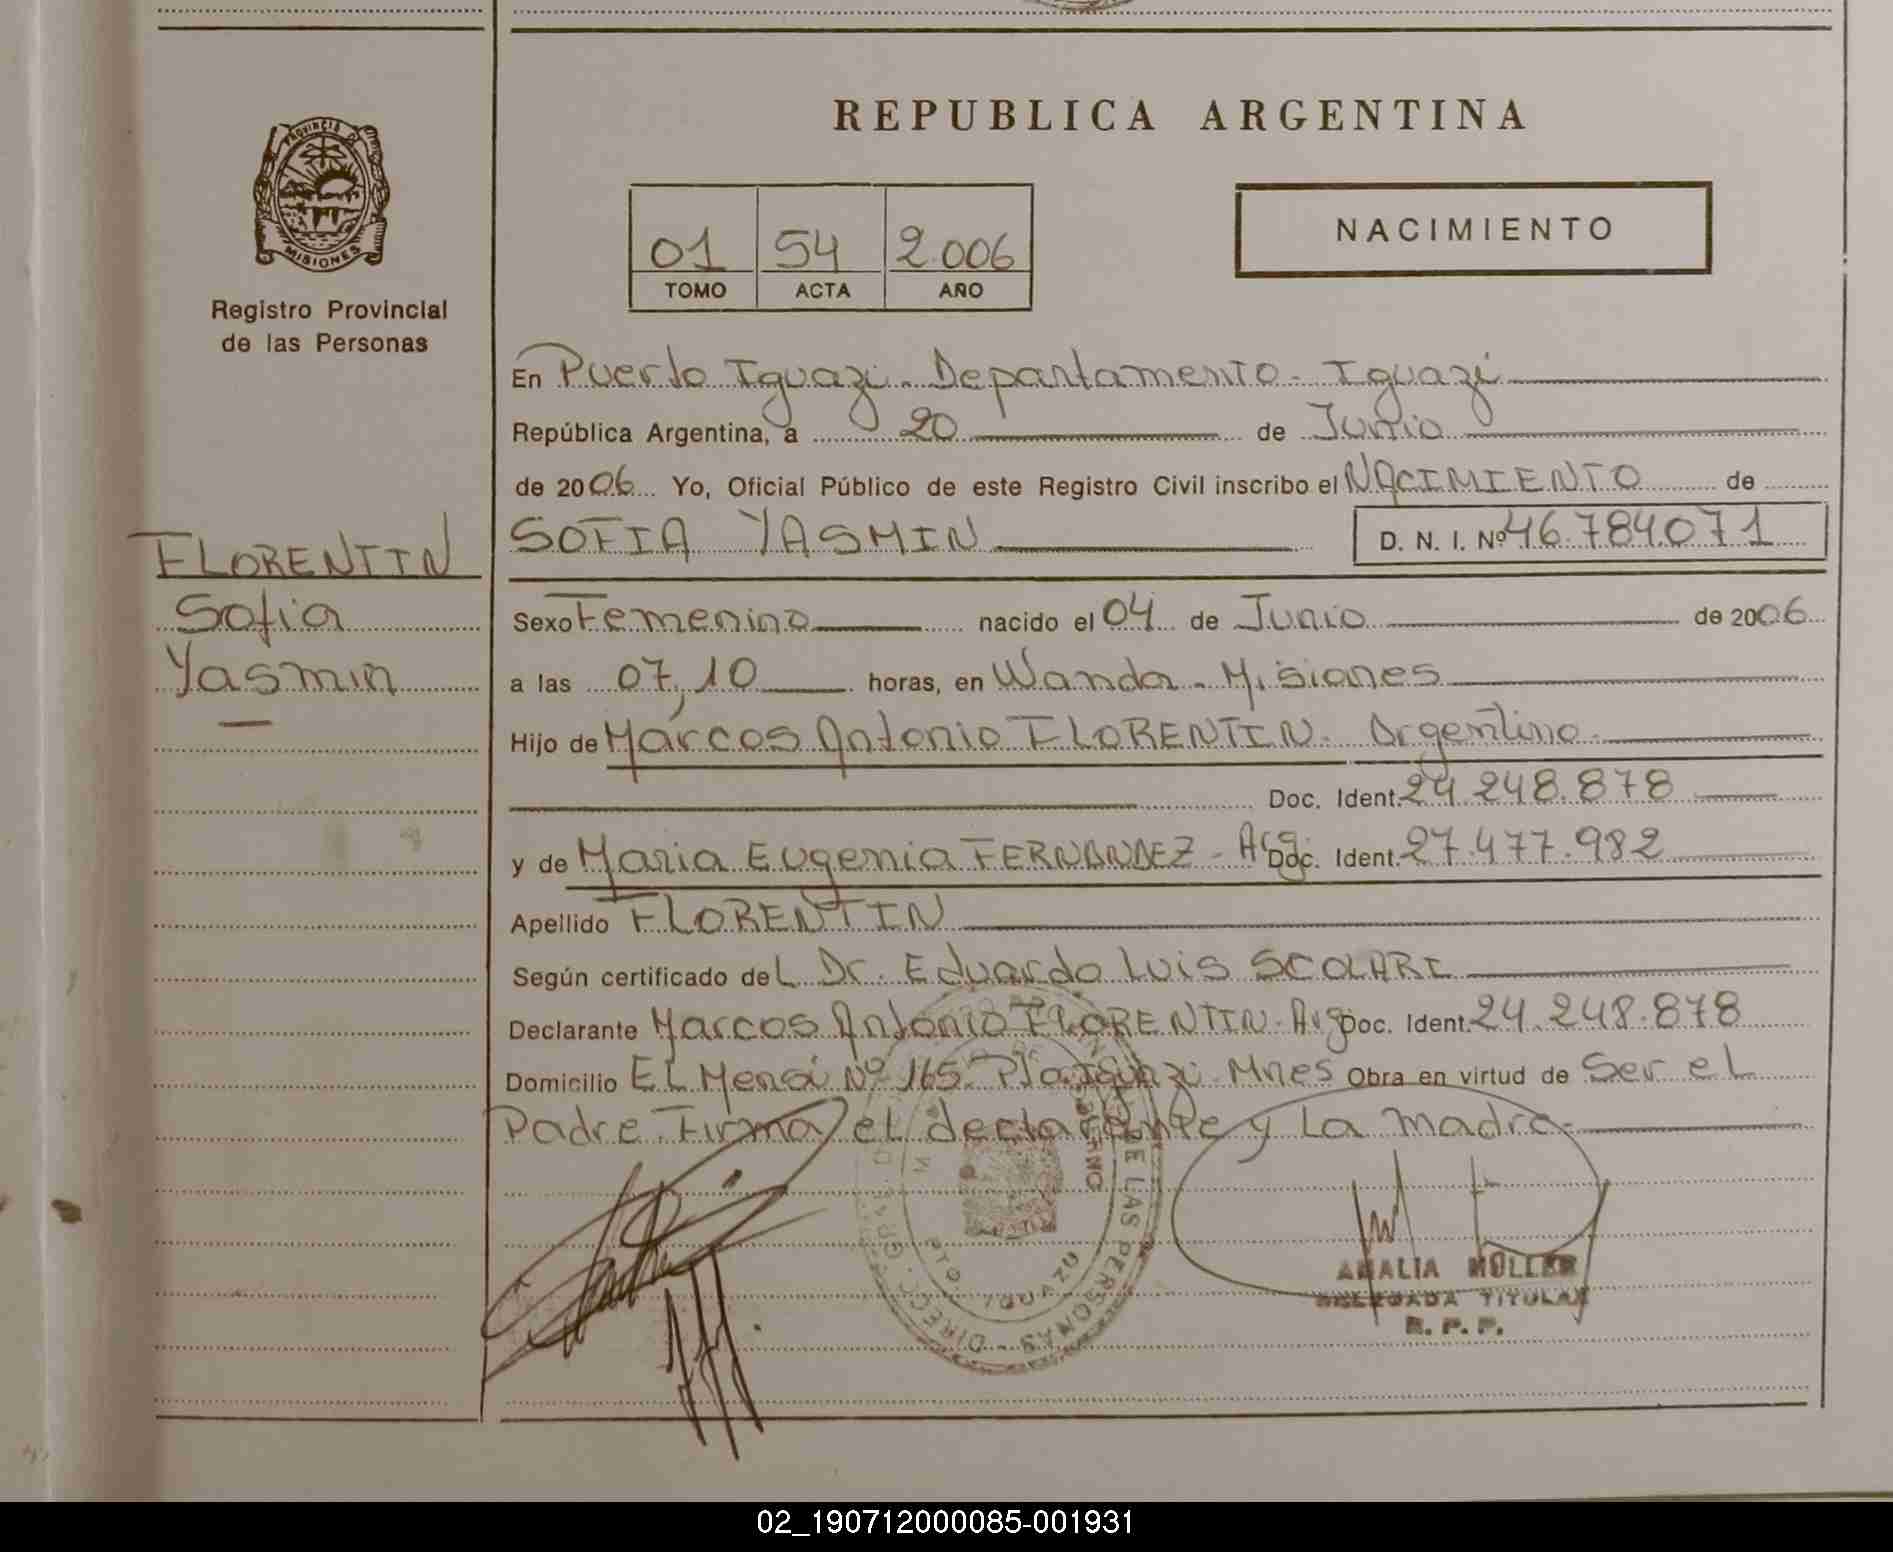 PROVINCIA DE
MISIONES
Registro Provincial
de las Personas
FLORENTIN
Sofia
Yasmin
REPUBLICA ARGENTINA
01 54 2.006
TOMO ACTA AÑO
NACIMIENTO
En Puerto Iguazú. Departamento - Iguazú
República Argentina, a 20 de Junio
de 2006 Yo, Oficial Público de este Registro Civil inscribo el NACIMIENTO de
SOFIA YASMIN D. N. I. Nº 46.784.071
Sexo Femenino nacido el 04 de Junio de 2006
a las 07,10 horas, en Wanda - Misiones
Hijo de Marcos Antonio FLORENTIN. Argentino
Doc. Ident. 24.248.878
y de Maria Eugenia FERNANDEZ - Arg. Doc. Ident. 27.477.982
Apellido FLORENTIN
Según certificado del Dr. Eduardo Luis SCOLARI
Declarante Marcos Antonio FLORENTIN - Arg. Doc. Ident. 24.248.878
Domicilio EL Mensú Nº 165. Pto Iguazú - Mnes Obra en virtud de Ser el
Padre. Firma el declarante y La madre
DE LAS PERSONAS - DIRECC. GRAL.
PTO IGUAZU
AMALIA MÜLLER
DELEGADA TITULAR
R. P. P.
02_190712000085-001931